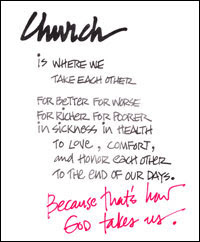 Church
is WHERE WE
TAKE EACH OTHER
FOR BETTER FOR WORSE
FOR RICHER FOR POORER
in SICKNESS in HEALTH
TO LOVE, COMFORT,
and HONOR EACH OTHER
TO THE END OF OUR DAYS.
Because that's how
GOD takes us.